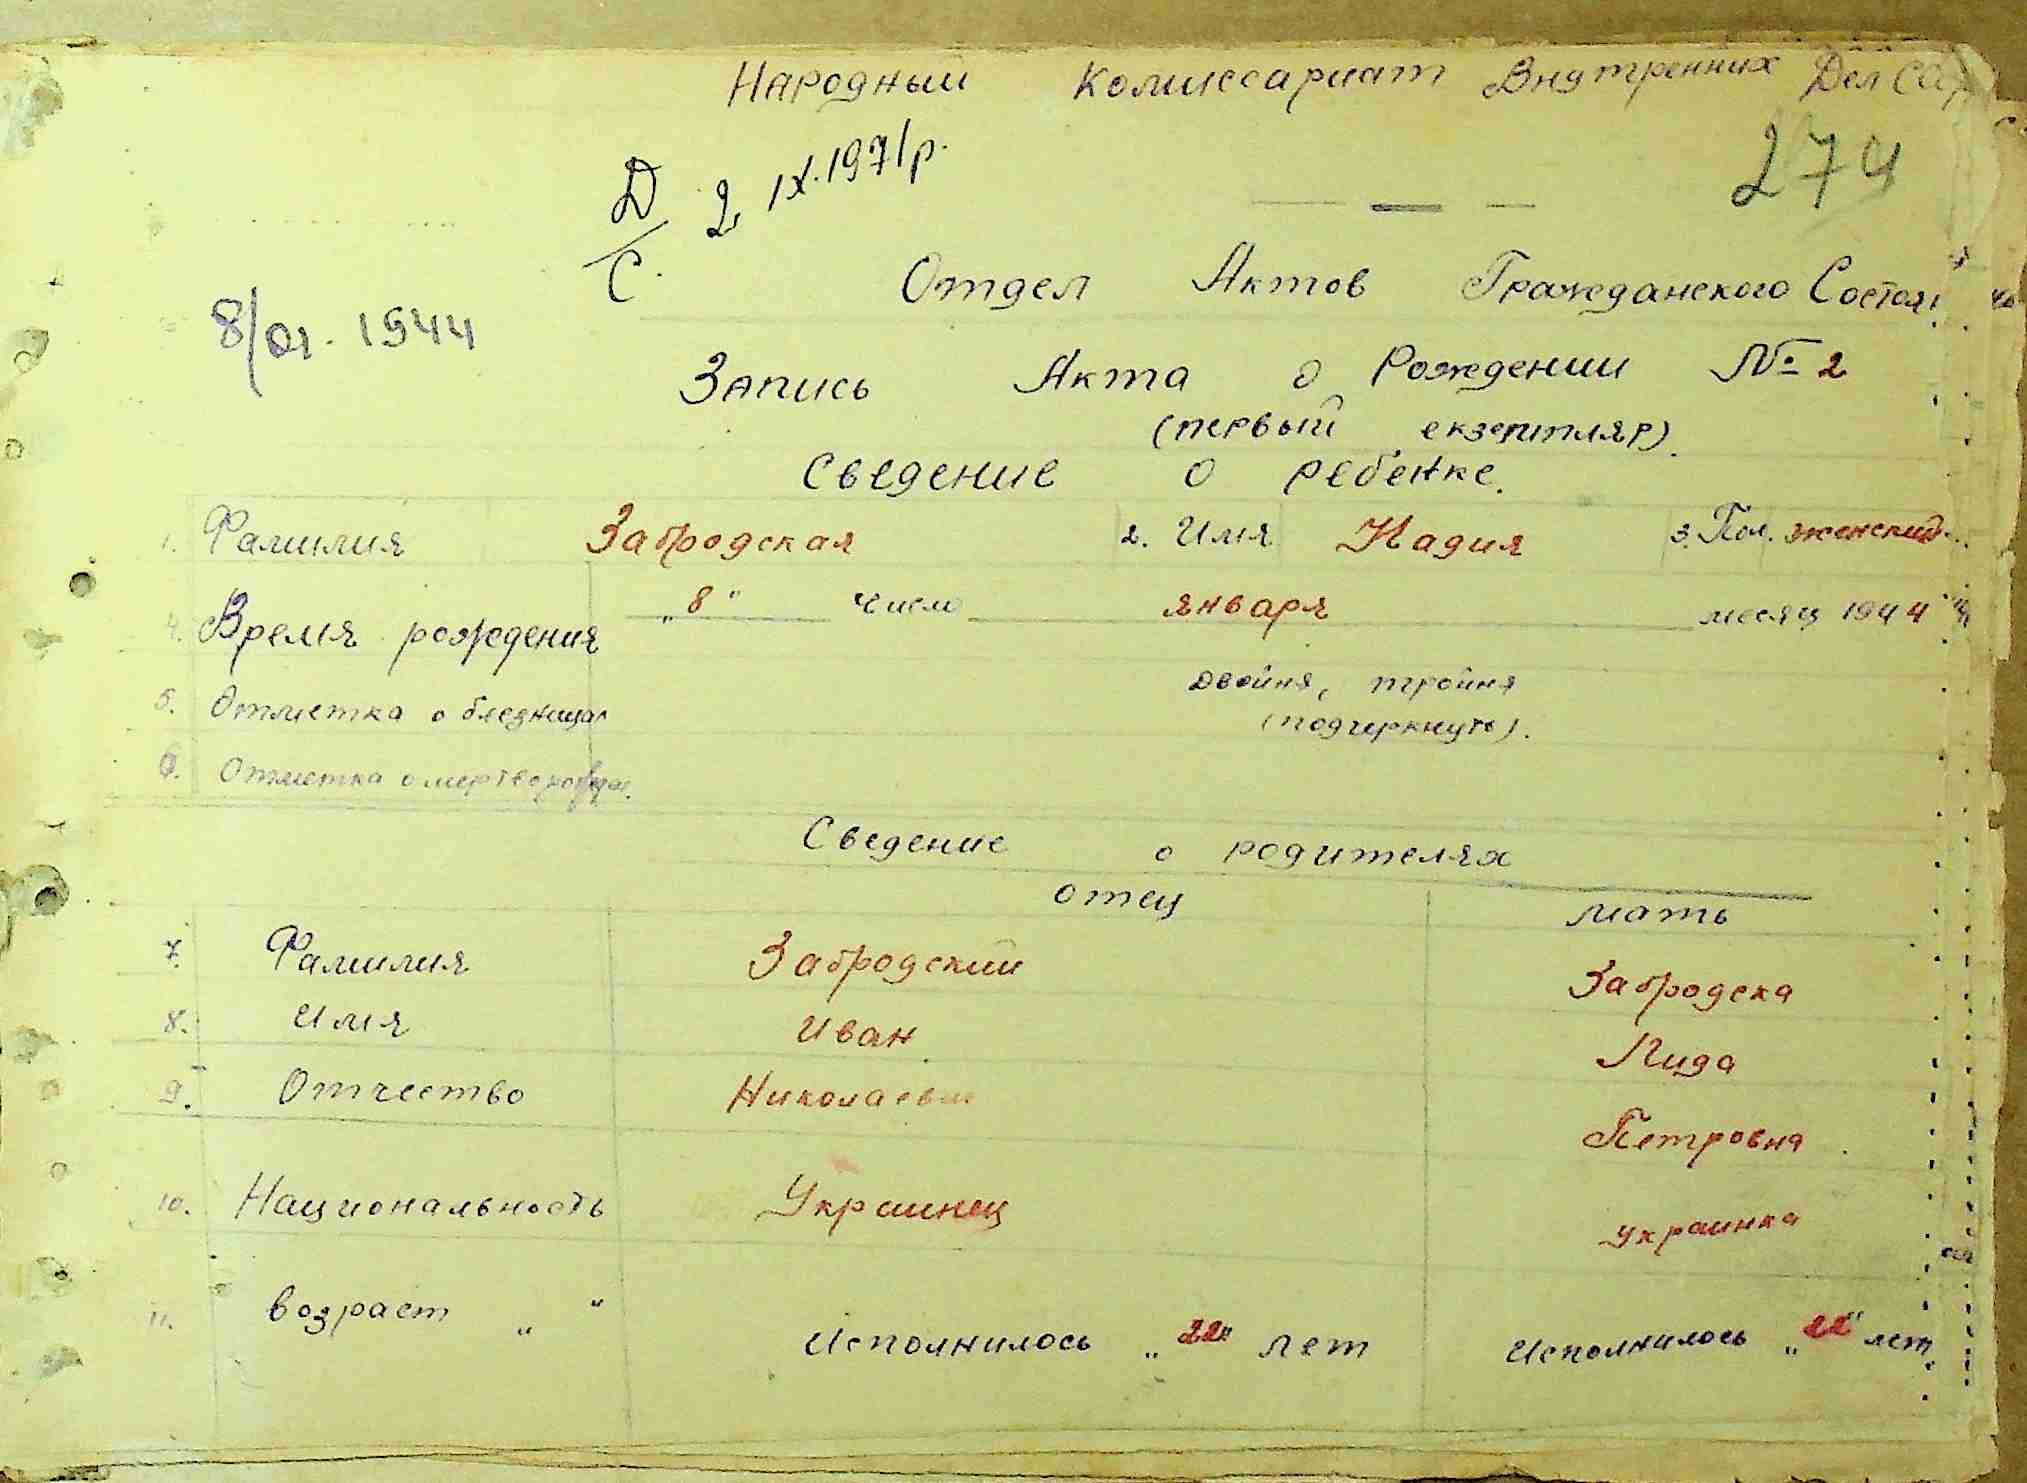 Народный Комиссариат Внутренних Дел
274
Д/с. 2 IX.1971р.
Отдел Актов Гражданского
8/01. 1944
Запись Акта о Рождении № 2
(первый екземпляр).
Сведение о ребенке.
1. Фамилия Забродская 2. Имя Надия 3. Пол. женский
4. Время рождения „8" число января месяц 1944
5. Отметка о
двойня, тройня
(подчеркнуть).
6. Отметка о
Сведение о родителях
отец мать
7. Фамилия Забродский Забродска
8. Имя Иван Лида
9. Отчество Николаевич Петровна
10. Национальность Украинец украинка
11. возраст „ " Исполнилось „22" лет Исполнилось „22" лет